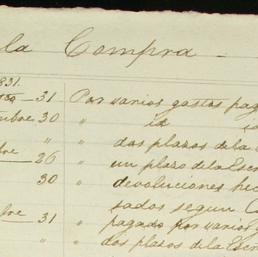 la Compra
1831.
31 Por varios gastos pag
30 " id id
" " dos plazos de la
26 " un plazo de la Escr
30 " devoluciones hec
sados segun
31 " pagado por varios
" " dos plazos de la Escr